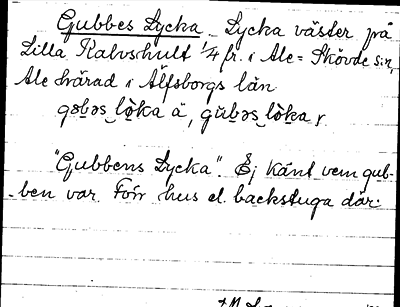 Gubbes Lycka. Lycka väster på
Lilla Kalvshult 1/4 fr. i Ale-Skövde s:n,
Ale härad i Älfsborgs län
"Gubbens Lycka". Ej känt vem gub-
ben var. Förr hus el. backstuga där.